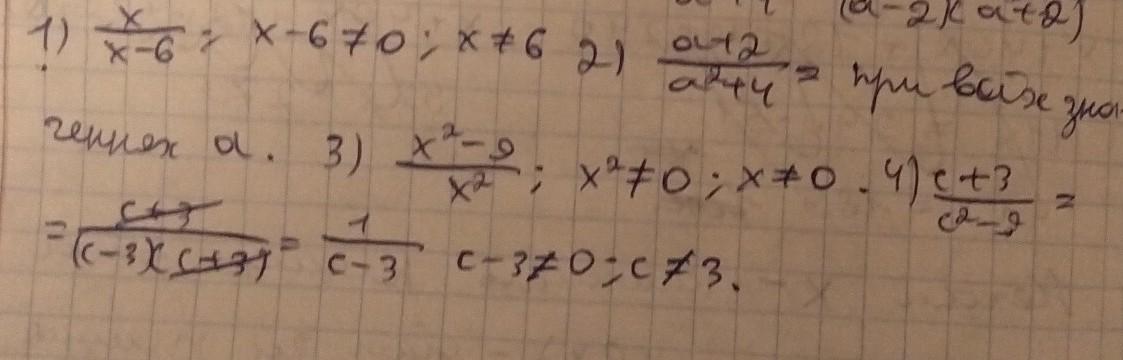 (a-2)(a+2)
1) x/(x-6); x-6≠0; x≠6 2) (a+2)/(a²+4) = при всіх зна-
чениях a. 3) (x²-9)/x²; x²≠0; x≠0. 4) (c+3)/(c²-9) =
= (c+3)/((c-3)(c+3)) = 1/(c-3) c-3≠0; c≠3.